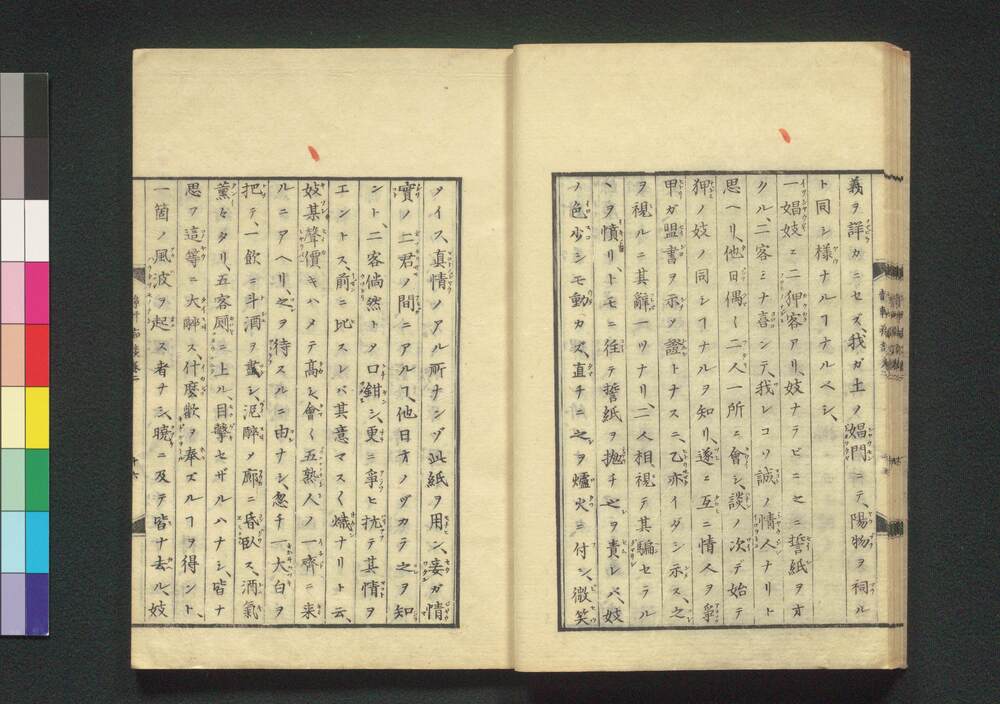 義ヲ詳カニセズ、我ガ土ノ娼門ニテ、陽物ヲ祠ル
ト同シ様ナルヿナルベシ、
一娼妓ニ二狎客アリ、妓ナラビニ之ニ誓紙ヲオ
クル、二客ミナ喜ンデ、我レコソ誠ノ情人ナリト
思ヘリ、他日偶〱二人一所ニ會シ、談ノ次デ始テ
狎ノ妓ノ同シヿナルヲ知リ、遂ニ互ニ情人ヲ爭
甲ガ盟書ヲ示シ證トナスニ、乙亦イダシ示ス、之
ヲ視ルニ其辭一ツナリ、二人相視テ其騙セラル
ヽヲ憤リ、トモニ往テ誓紙ヲ抛チ之ヲ責レバ、妓
ノ色少シモ動カズ、直チニ之ヲ爐火ニ付シ、微笑
タイス、真情ノアル所ナンゾ此紙ヲ用ン、妾ガ情
實ノ二君ノ間ニアルヿ、他日オノヅカラ之ヲ知
ント、二客倘然トタ口鉗シ、更ニ爭ヒ抗テ其情ヲ
エントス、前ニ比スレバ其意マス〱熾ナリト云、
妓某聲價キハメテ高シ、會〱五熟人ノ一齊ニ来
ルニアヘリ、之ヲ待スルニ由ナシ、忽チ一大白ヲ
把テ、一飲ニ斗酒ヲ盡シ、泥酔メ廊ニ昏臥ス、酒氣
薰々タリ、五客厠ニ上ル、目撃セザルハナシ、皆ナ
思フ這等ニ大酔ス、什麼歡ヲ奉ズルヿヲ得ント、
一箇ノ風波ヲ起ス者ナシ、曉ニ及テ皆ナ去ル、妓